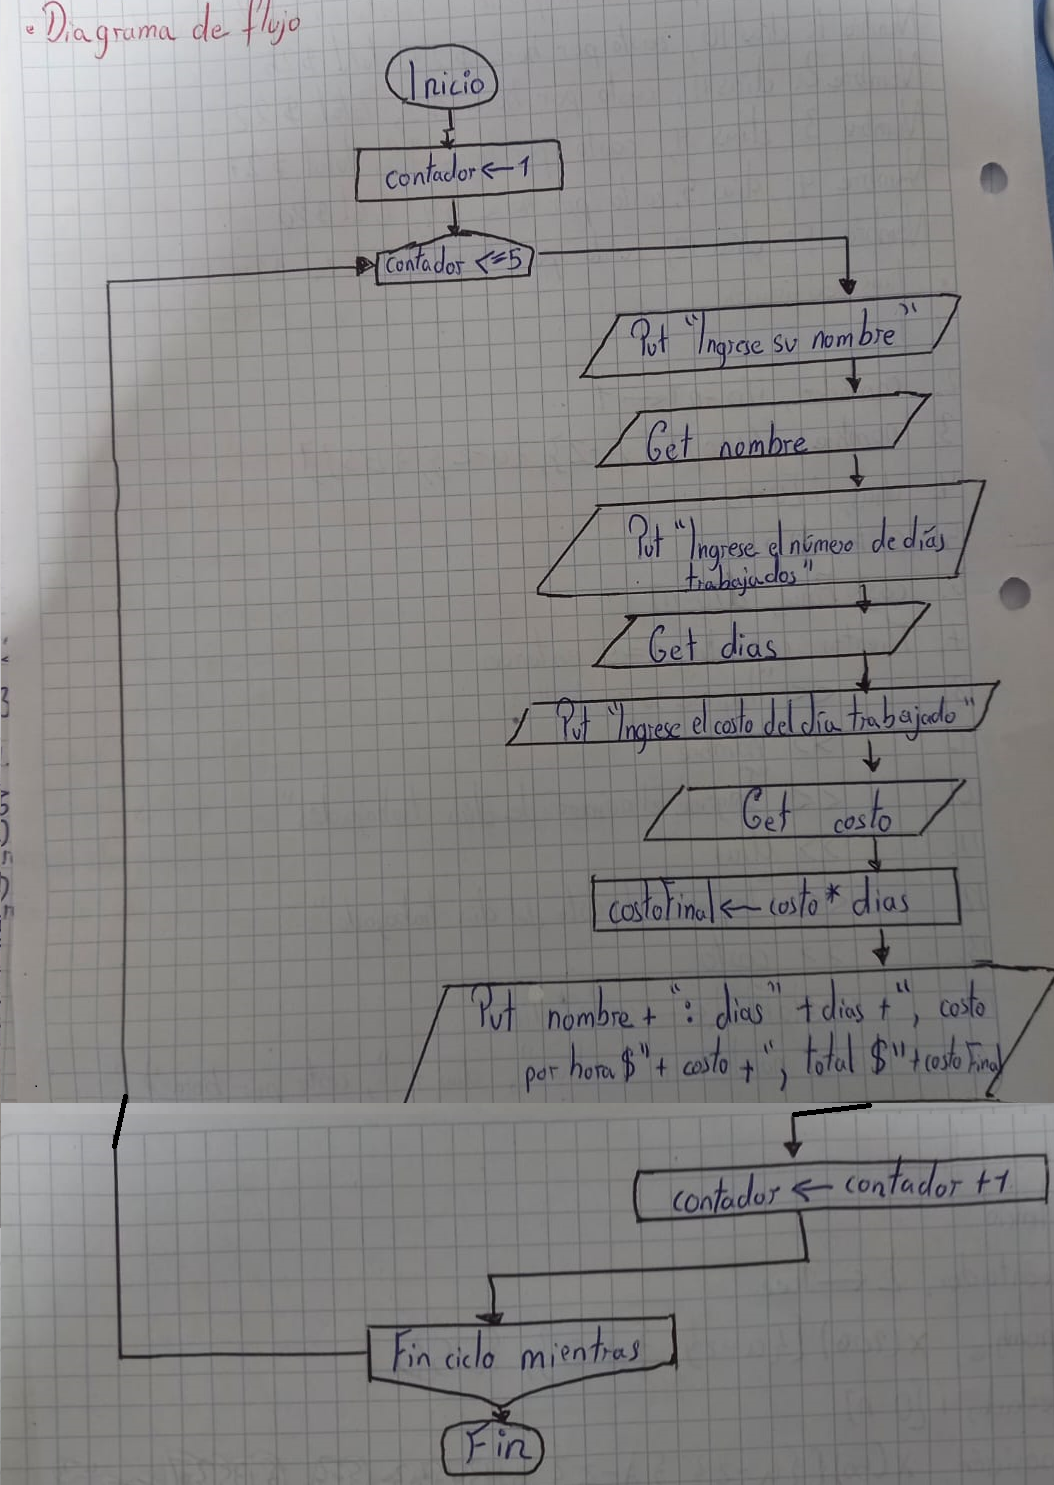 • Diagrama de flujo
Inicio
contador ← 1
contador <=5
Put "Ingrese su nombre"
Get nombre
Put "Ingrese el número de días
trabajados"
Get dias
Put "Ingrese el costo del día trabajado"
Get costo
costoFinal ← costo * dias
Put nombre + ": dias" + dias + ", costo
por hora $" + costo + ", total $" + costoFinal
contador ← contador +1
Fin ciclo mientras
Fin